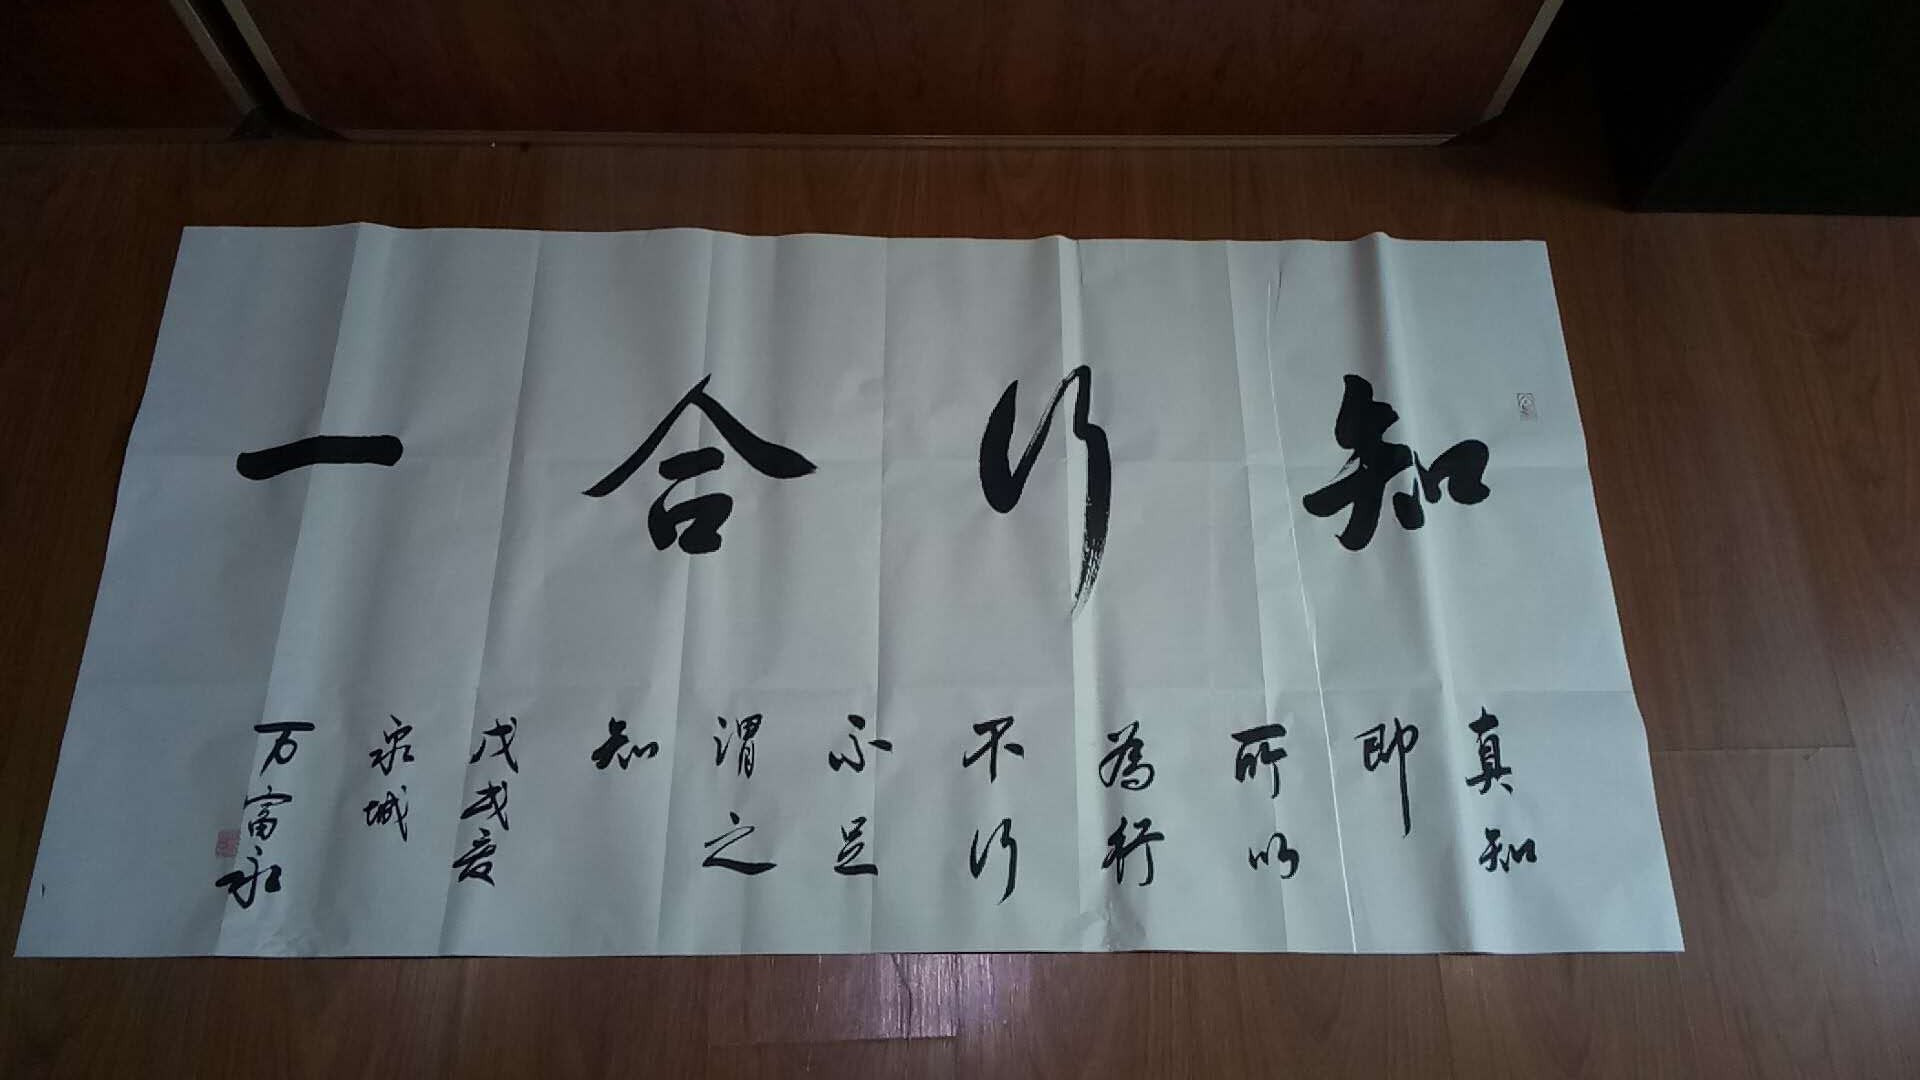 知行合一
真知
即
所以
為行
不行
不足
謂之
知
戊戌夏
泉城
万富永